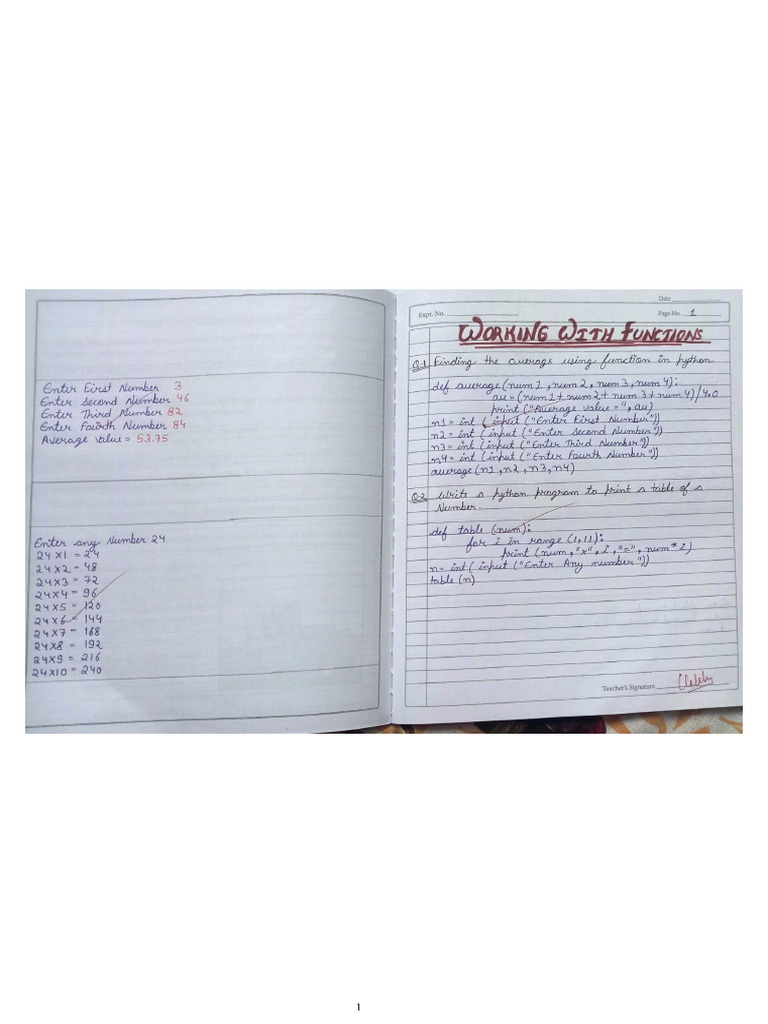 Enter First Number 3
Enter Second Number 46
Enter Third Number 82
Enter Fourth Number 84
Average Value = 53.75
Enter any Number 24
24x1 = 24
24x2 = 48
24x3 = 72
24x4 = 96
24x5 = 120
24x6 = 144
24x7 = 168
24x8 = 192
24x9 = 216
24x10 = 240
Date
Expt. No.
Page No. 1
WORKING WITH FUNCTIONS
Q.1 Finding the average using function in python.
def average(num1, num2, num3, num4):
au=(num1+num2+num3+num4)/4.0
print("Average value=", au)
n1=int(input("Enter First Number"))
n2=int(input("Enter Second Number"))
n3=int(input("Enter Third Number"))
n4=int(input("Enter Fourth Number"))
average(n1,n2,n3,n4)
Q2 Write a python program to print a table of a
Number.
def table(num):
for i in range(1,11):
print(num,"x",i,"=",num*i)
n=int(input("Enter Any number"))
table(n)
Teacher's Signature
1